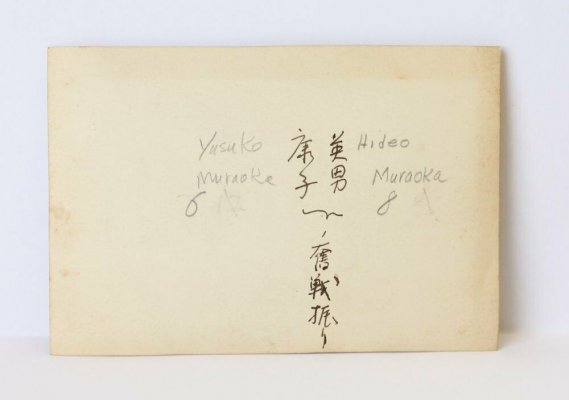 Yasuko
Muraoka
6
英男
康子
ノ奮戦振り
Hideo
Muraoka
8